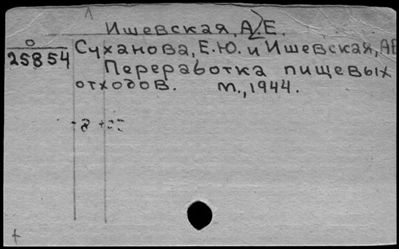 Ишевская, А.Е.
О
25854
Суханова, Е.Ю. и Ишевская, АЕ
Переработка пищевых
отходов. М., 1944.